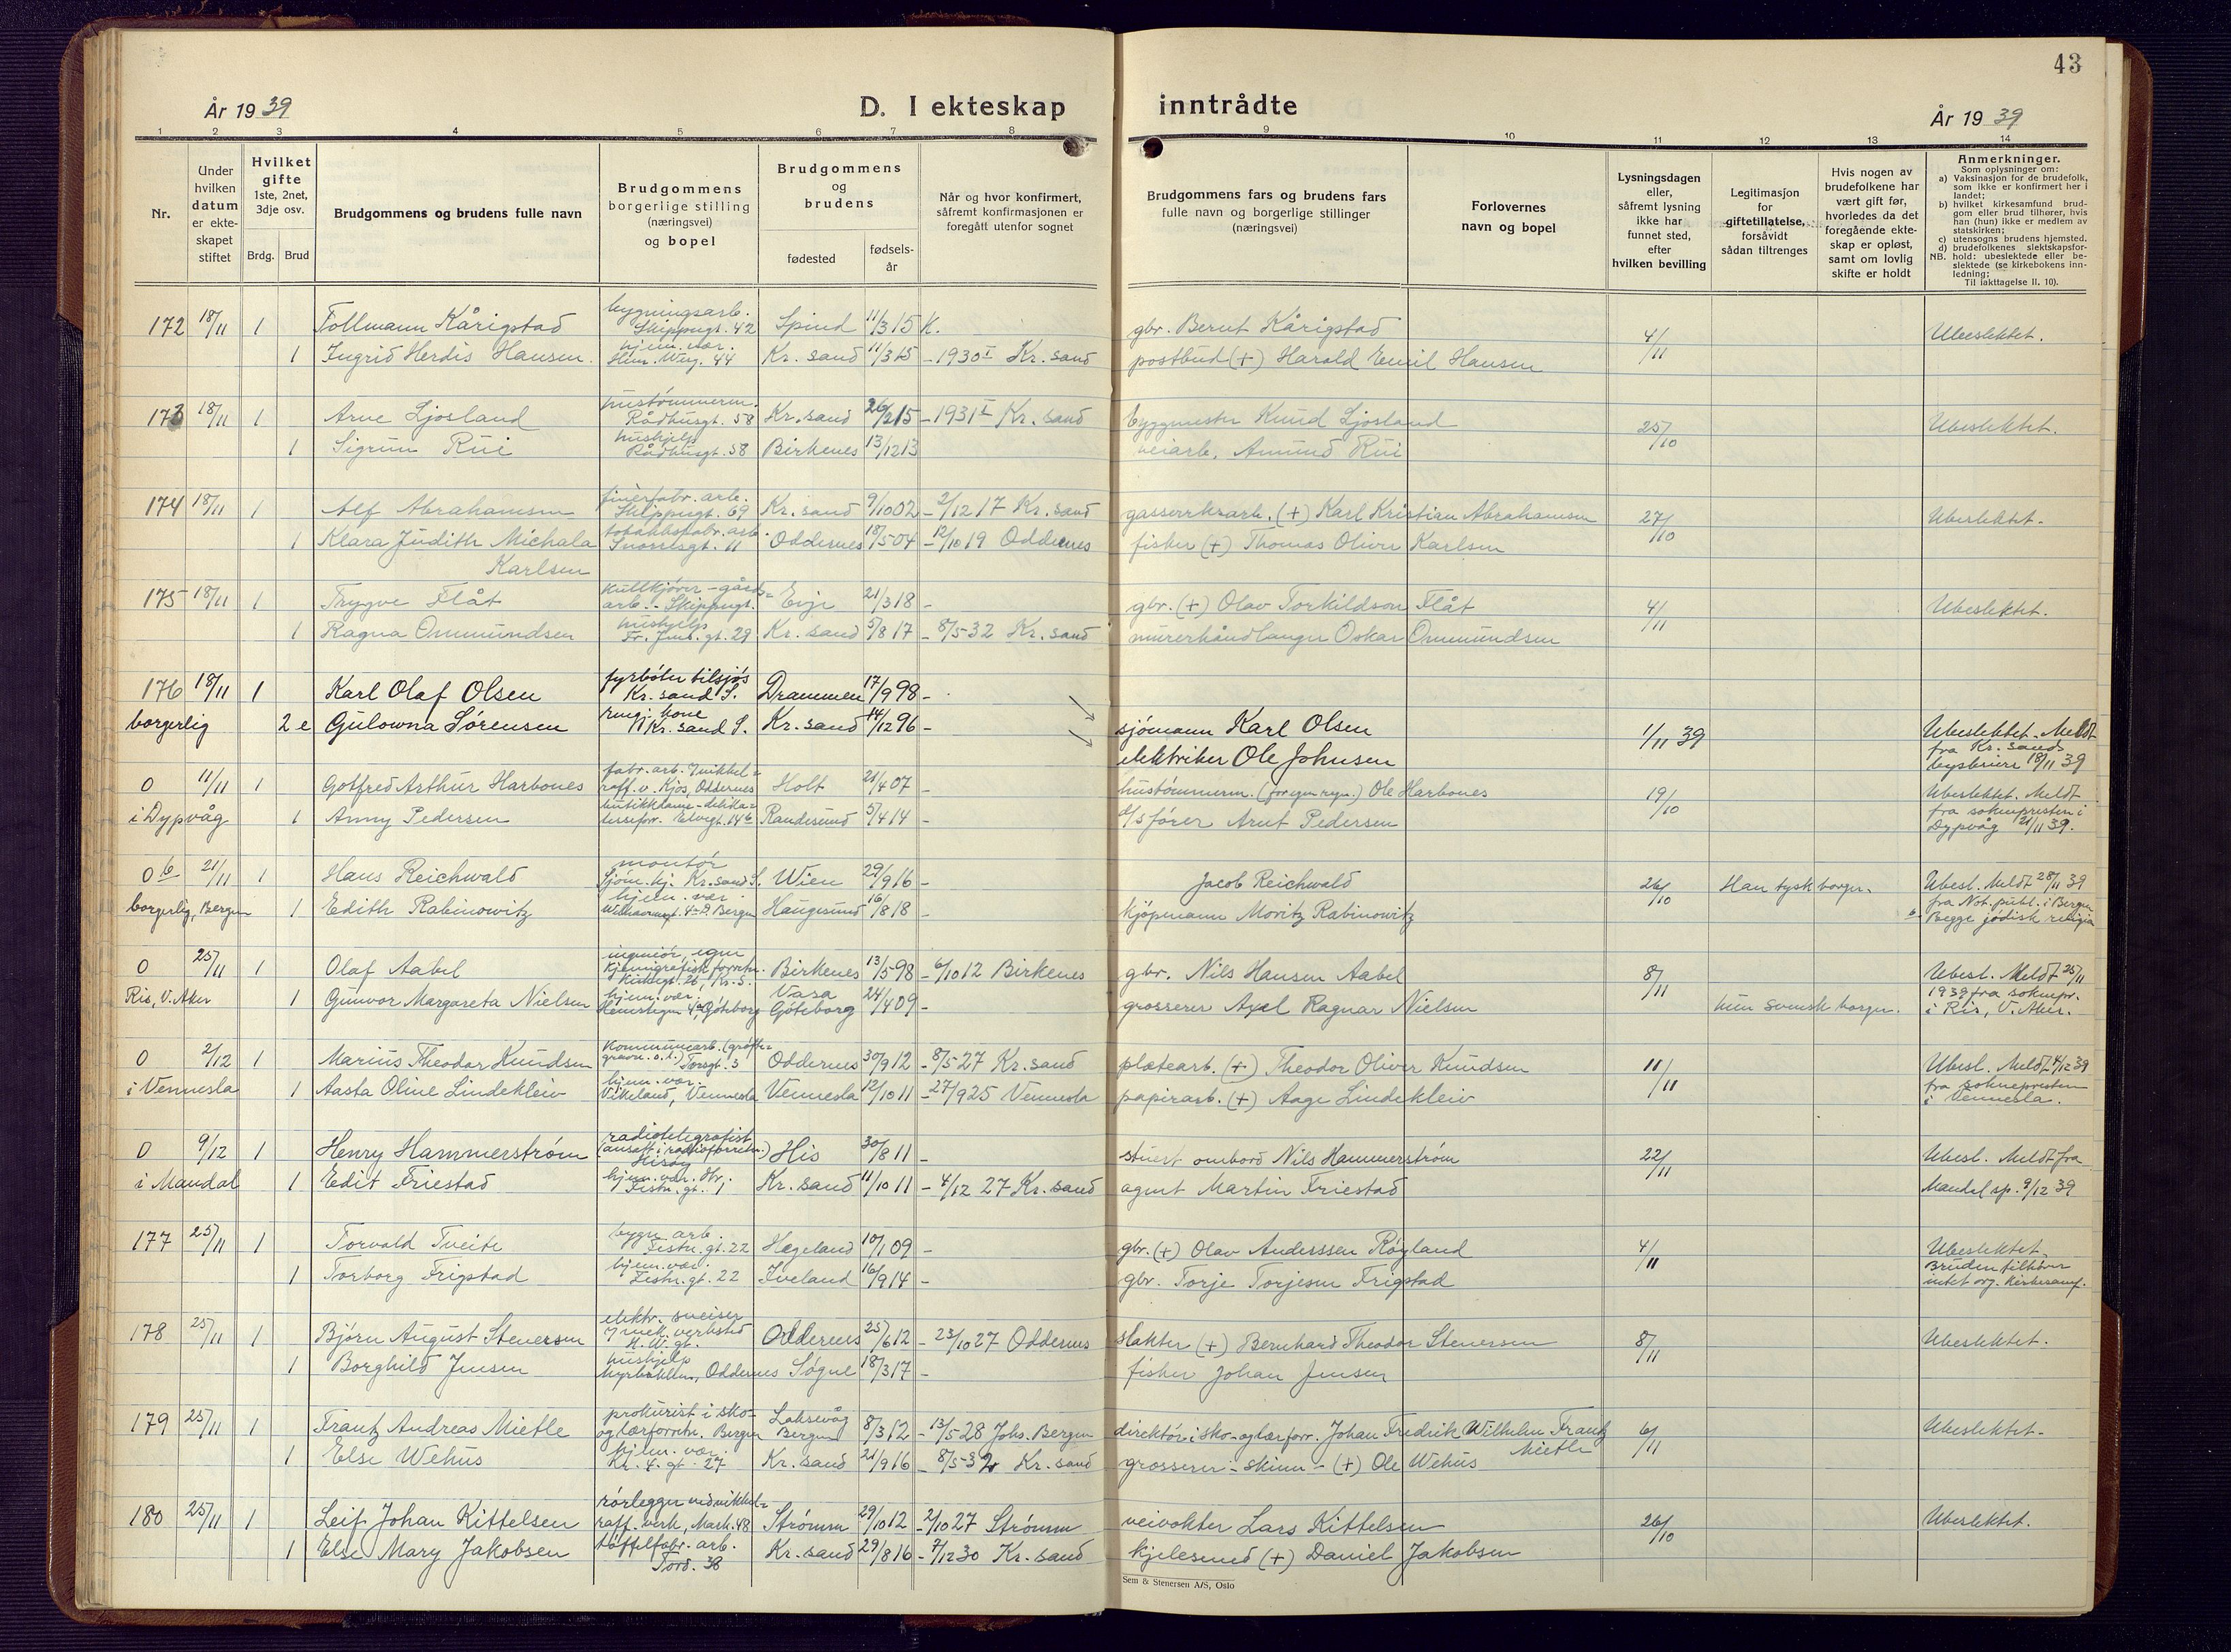 43
År 1939
D. I ekteskap inntrådte
År 1939
1 2 3 4 5 6 7 8 9 10 11 12 13 14
Nr.
Under hvilken datum er ekteskapet stiftet
Hvilket gifte 1ste, 2net, 3dje osv.
Brdg. Brud
Brudgommens og brudens fulle navn
Brudgommens borgerlige stilling (næringsvei) og bopel
Brudgommens og brudens
fødested
fødselsår
Når og hvor konfirmert, såfremt konfirmasjonen er foregått utenfor sognet
Brudgommens fars og brudens fars fulle navn og borgerlige stillinger (næringsvei)
Forlovernes navn og bopel
Lysningsdagen eller, såfremt lysning ikke har funnet sted, efter hvilken bevilling
Legitimasjon for giftetillatelse, forsåvidt sådan tiltrenges
Hvis nogen av brudefolkene har vært gift før, hvorledes da det foregående ekteskap er opløst, samt om lovlig skifte er holdt
Anmerkninger.
Som oplysninger om:
a) Vaksinasjon for de brudefolk, som ikke er konfirmert her i landet;
b) hvilket kirkesamfund brudgom eller brud tilhører, hvis han (hun) ikke er medlem av statskirken;
c) utensogns brudens hjemsted.
d) brudefolkenes slektskapsforhold: ubeslektede eller beslektede (se kirkebokens innledning;
NB.
Til iakttagelse II. 10).
172 18/11 1 Tollmann Kårigstad bygningsarb. Skippergt. 42 Spind 11/3 15 K. gbr. Bernt Kårigstad 4/11 Ubeslektet.
1 Ingrid Herdis Hansen. hjem. vær. Hnr. Werg. 44 Kr. sand 11/3 15 - 1930 I Kr. sand postbud (+) Harald Emil Hansen
173 18/11 1 Arne Ljosland hustømmerm. Rådhusgt. 58 Kr. sand 26/2 15 - 1931 I Kr. sand byggmester Knud Ljosland 25/10 Ubeslektet.
1 Sigrun Rui hushjelp Rådhusgt. 58 Birkenes 13/12 13 veiarb. Amund Rui
174 18/11 1 Alf Abrahamsen finérfabr. arb. Skippergt. 69 Kr. sand 9/10 02 - 2/12 17 Kr. sand gassverksarb. (+) Karl Kristian Abrahamsen 27/10 Ubeslektet.
1 Klara Judith Michala tobakksfabr. arb. Snorresgt. 11 Oddernes 18/5 04 - 12/10 19 Oddernes fisker (+) Thomas Oliver Karlsen
Karlsen
175 18/11 1 Trygve Flåt kullkjører - gårds= arb. - Skippergt. Evje 21/3 18 - gbr. (+) Olav Torkildson Flåt 4/11 Ubeslektet.
1 Ragna Ommundsen hushjelp Fr. Frns. gt. 29 Kr. sand 5/8 17 - 8/5 32 Kr. sand murerhåndlanger Oskar Ommundsen
176 18/11 1 Karl Olaf Olsen fyrbøter tilsjøs Kr. sand S. Drammen 17/9 98 -
borgerlig 2 e Gulowna Sørensen rengj. kone Kr. sand S. Kr. sand 14/12 96 - sjømann Karl Olsen 1/11 39 Ubeslektet. Meldt
elektriker Ole Johnsen fra Kr. sands byskriver 18/11 39
0 11/11 1 Gotfred Arthur Harbones fabr. arb. Nikkel= raff. v. Kjos, Oddernes Holt 21/4 07 - hustømmerm. (for egen regn.) Ole Harbones 19/10 Ubeslektet. Meldt
i Dypvåg 1 Anny Pedersen butikkdame - delika= tesseforr. Elvegt. 14b Randesund 5/4 14 - d/s fører Arnt Pedersen fra sokneprester i Dypvåg 21/11 39.
0 b 21/11 1 Hans Reichwald montør Sjøm. hj. Kr. sand S. Wien 29/9 16 - Jacob Reichwald 26/10 Han tysk borger. Ubesl. Meldt 28/11 39
borgerlig, Bergen 1 Edith Rabinowitz hjem. vær. Bergen Haugesund 16/8 18 - kjøpmann Moritz Rabinowitz fra Not. publ. i Bergen
b Begge jødisk religion
0 25/11 1 Olaf Aabel ingeniør, egen kjemigrafisk forretn. Birkenes 13/5 98 - 6/10 12 Birkenes gbr. Nils Hansen Aabel 8/11 Ubesl. Meldt 25/11
Ris, V. Aker 1 Gunvor Margareta Nielsen hjem. vær. Göteborg Vasa Göteborg 24/4 09 - grosserer Axel Ragnar Nielsen hun svensk borger. 1939 fra soknepr. i Ris, V. Aker.
0 2/12 1 Marius Theodor Knudsen kommunearb. (grøfte= grav. o. l.) Torsgt. 3 Oddernes 30/9 12 - 8/5 27 Kr. sand platearb. (+) Theodor Oliver Knudsen 11/11 Ubesl. Meldt 4/12 39
i Vennesla 1 Aasta Oline Lindekleiv hjem. vær. Vikeland, Vennesla Vennesla 12/10 11 - 27/9 25 Vennesla papirarb. (+) Aage Lindekleiv fra sokneprester i Vennesla.
0 9/12 1 Henry Hammerstrøm radiotelegrafist (ansatt i radioforretn.) Hisøy His 30/8 11 - stuert ombord Nils Hammerstrøm 22/11 Ubesl. Meldt fra
i Mandal 1 Edit Friestad hjem. vær. hr. Festn. gt. 1 Kr. sand 11/10 11 - 4/12 27 Kr. sand agent Martin Friestad Mandal sp. 9/12 39
177 25/11 1 Torvald Tveite bygn. arb. Festn. gt. 22 Hægeland 10/1 09 - gbr. (+) Olav Anderssen Røyland 4/11 Ubeslektet.
1 Torborg Frigstad hjem. vær. Festn. gt. 22 Iveland 16/9 14 - gbr. Torje Torjesen Frigstad Bruden tilhører intet org. kirkesamf.
178 25/11 1 Bjørn August Stenersen elektr. sveiser mek. verksted H. W. gt. Oddernes 25/6 12 - 23/10 27 Oddernes slakter (+) Bernhard Theodor Stenersen 8/11 Ubeslektet.
1 Borghild Jensen hushjelp Myrbakken, Oddernes Søgne 18/3 17 - fisker Johan Jensen
179 25/11 1 Frantz Andreas Mietle prokurist i sko- og lærforretn. Bergen Laksevåg Bergen 8/3 12 - 13/5 28 Johs. Bergen direktør i sko- og lærforr. Johan Fredrik Wilhelm Frantz Mietle 6/11 Ubeslektet.
1 Else Wehus hjem. vær. Kr. 4. gt. 27 Kr. sand 21/9 16 - 8/5 32 Kr. sand grosserer - skinn - (+) Ole Wehus
180 25/11 1 Leif Johan Kittelsen rørlegger ved nikkel= raff. verk, Mark. 48 Strømm 29/10 12 - 2/10 27 Strømm veivokter Lars Kittelsen 26/10 Ubeslektet.
1 Else Mary Jakobsen tøffelfabr. arb. Tord. 38 Kr. sand 29/8 16 - 7/12 30 Kr. sand kjelesmed (+) Daniel Jakobsen
Sem & Stenersen A/S, Oslo